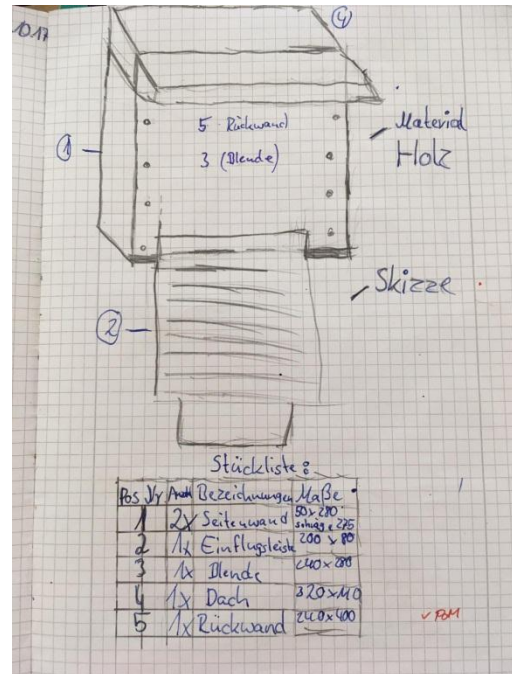 10.17
4
5 Rückwand
3 (Blende)
Material
Holz
1
2
Skizze
Stückliste:
Pos Nr Anzahl Bezeichnungen Maße
1 2x Seitenwand 50x280
schräge 275
2 1x Einflugsleiste 200 x 80
3 1x Blende 240x280
4 1x Dach 320x110
5 1x Rückwand 240x400